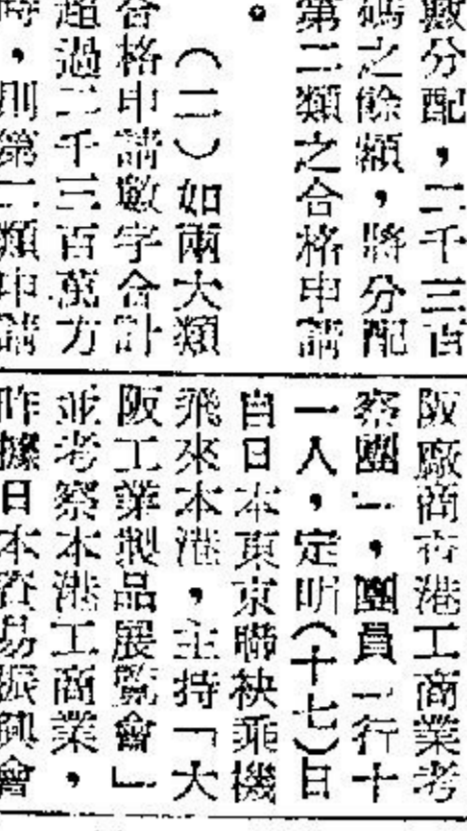 數分配，二千三百
碼之餘額，將分配
第二類之合格申請
。
（二）如兩大類
合格申請數字合計
超過二千三百萬方
時，則第二類申請
阪廠商香港工商業考
察團」，團員一行十
一人，定明（十七）日
自日本東京聯袂乘機
飛來本港，主持「大
阪工業製品展覽會」
並考察本港工商業，
昨據日本貿易振興會